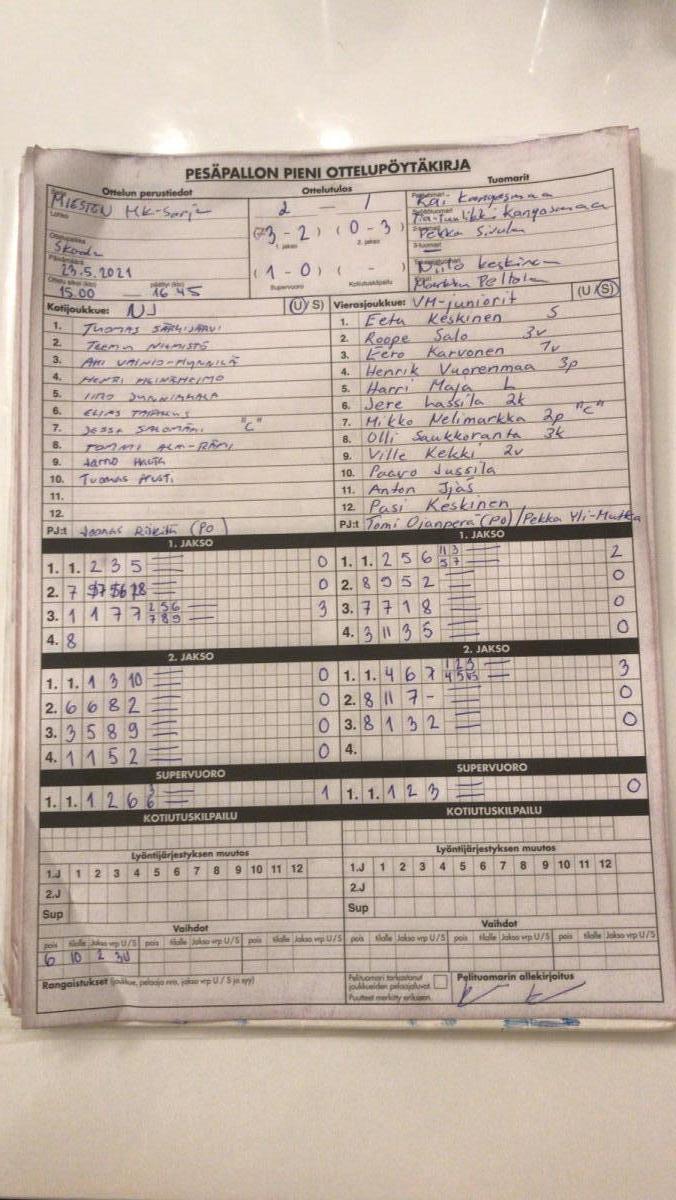 PESÄPALLON PIENI OTTELUPÖYTÄKIRJA
Ottelun perustiedot Ottelutulos Tuomarit
MIESTEN MK-Sarja 2 — 1 Kai Kangasmaa
Kangasmaa
(3-2) (0-3) Pekka Sivula
1. jakso 2. jakso
Skoda
23.5.2021 Niilo Keskinen
(1-0) ( - ) Markku Peltola
15.00 — 16.45 Supervuoro Kotiutuskilpailu
Kotijoukkue: NJ (U/S) Vierasjoukkue: VM-juniorit (U/S)
1. TUOMAS SÄRKIJÄRVI
2. TEEMU NIEMISTÖ
3. AKI VAINIO-MYNNILÄ
4. HENRI HEINHEIMO
5. IIRO
6. ELIAS
7. JESSE SALOMÄKI "C"
8. TOMMI ALA-RÄMI
9. Jarno Hauta
10. Tuomas
11.
12.
PJ:t Joonas (PO)
1. Eetu Keskinen S
2. Roope Salo 3v
3. Eero Karvonen 1v
4. Henrik Vuorenmaa 3p
5. Harri Maja L
6. Jere Lassila 2k
7. Mikko Nelimarkka 2p "C"
8. Olli Saukkoranta 3k
9. Ville Kekki 2v
10. Paavo Jussila
11. Anton Ijäs
12. Pasi Keskinen
PJ:t Tomi Ojanperä (PO) / Pekka Yli-Mutka
1. JAKSO 1. JAKSO
1. 1. 2 3 5 0 1. 1. 2 5 6 11 3 5 7 2
2. 7 0 2. 8 9 5 2 0
3. 1 1 7 7 2 5 6 7 8 9 3 3. 7 7 1 8 0
4. 8 4. 3 11 3 5 0
2. JAKSO 2. JAKSO
1. 1. 1 3 10 0 1. 1. 4 6 7 1 2 3 4 5 3
2. 6 6 8 2 0 2. 8 11 7 - 0
3. 3 5 8 9 0 3. 8 1 3 2 0
4. 1 1 5 2 0 4.
SUPERVUORO SUPERVUORO
1. 1. 1 2 6 3 6 1 1. 1. 1 2 3 0
KOTIUTUSKILPAILU KOTIUTUSKILPAILU
Lyöntijärjestyksen muutos Lyöntijärjestyksen muutos
1.J 1 2 3 4 5 6 7 8 9 10 11 12 1.J 1 2 3 4 5 6 7 8 9 10 11 12
2.J 2.J
Sup Sup
Vaihdot Vaihdot
pois tilalle Jakso vrp U/S pois tilalle Jakso vrp U/S pois tilalle Jakso vrp U/S pois tilalle Jakso vrp U/S pois tilalle Jakso vrp U/S pois tilalle Jakso vrp U/S
6 10 2 3U
Rangaistukset (joukkue, pelaaja nro, jakso vrp U / S ja syy)
Pelituomari tarkastanut joukkueiden pelaajaluvat.
Puutteet merkitty erikseen.
Pelituomarin allekirjoitus